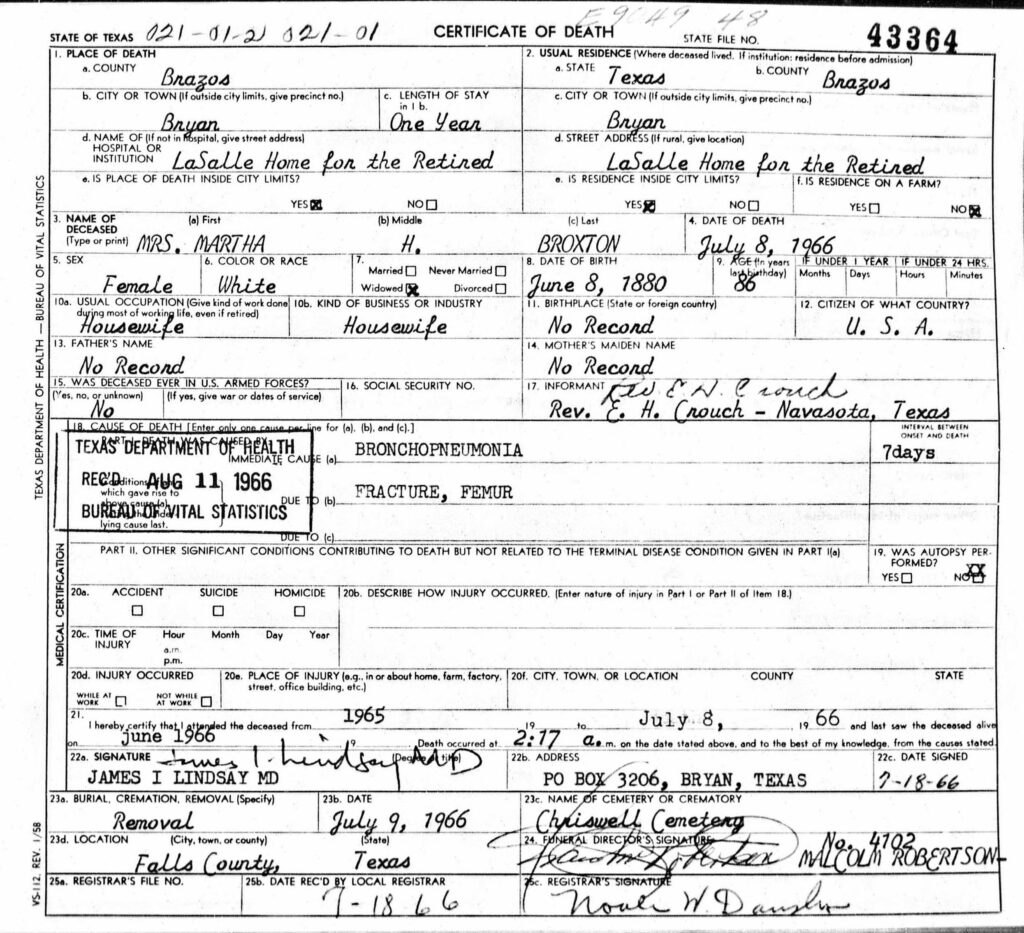 E9C49 48
STATE OF TEXAS 021-01-2) 021-01 CERTIFICATE OF DEATH STATE FILE NO. 43364
1. PLACE OF DEATH
a. COUNTY Brazos
2. USUAL RESIDENCE (Where deceased lived. If institution: residence before admission)
a. STATE Texas b. COUNTY Brazos
b. CITY OR TOWN (If outside city limits, give precinct no.) Bryan
c. LENGTH OF STAY in 1 b. One Year
c. CITY OR TOWN (If outside city limits, give precinct no.) Bryan
d. NAME OF (If not in hospital, give street address) HOSPITAL OR INSTITUTION LaSalle Home for the Retired
d. STREET ADDRESS (If rural, give location) LaSalle Home for the Retired
e. IS PLACE OF DEATH INSIDE CITY LIMITS?
YES☒ NO☐
e. IS RESIDENCE INSIDE CITY LIMITS?
YES☒ NO☐
f. IS RESIDENCE ON A FARM?
YES☐ NO☒
3. NAME OF DECEASED (Type or print) (a) First (b) Middle (c) Last
MRS. MARTHA H. BROXTON
4. DATE OF DEATH
July 8, 1966
5. SEX
Female
6. COLOR OR RACE
White
7. Married☐ Never Married☐
Widowed☒ Divorced☐
8. DATE OF BIRTH
June 8, 1880
9. AGE (In years last birthday)
86
IF UNDER 1 YEAR
Months Days
IF UNDER 24 HRS.
Hours Minutes
10a. USUAL OCCUPATION (Give kind of work done during most of working life, even if retired)
Housewife
10b. KIND OF BUSINESS OR INDUSTRY
Housewife
11. BIRTHPLACE (State or foreign country)
No Record
12. CITIZEN OF WHAT COUNTRY?
U. S. A.
13. FATHER'S NAME
No Record
14. MOTHER'S MAIDEN NAME
No Record
15. WAS DECEASED EVER IN U.S. ARMED FORCES?
(Yes, no, or unknown) (If yes, give war or dates of service)
No
16. SOCIAL SECURITY NO.
17. INFORMANT Rev. E H. Crouch
Rev. E. H. Crouch - Navasota, Texas
18. CAUSE OF DEATH [Enter only one cause per line for (a), (b), and (c).]
PART I. DEATH WAS CAUSED BY
INTERVAL BETWEEN ONSET AND DEATH
IMMEDIATE CAUSE (a) BRONCHOPNEUMONIA 7days
TEXAS DEPARTMENT OF HEALTH
REC'D AUG 11 1966
BUREAU OF VITAL STATISTICS
Conditions
which gave rise to
lying cause last.
DUE TO (b) FRACTURE, FEMUR
DUE TO (c)
PART II. OTHER SIGNIFICANT CONDITIONS CONTRIBUTING TO DEATH BUT NOT RELATED TO THE TERMINAL DISEASE CONDITION GIVEN IN PART I(a)
19. WAS AUTOPSY PERFORMED?
YES☐ NO☒ XX
20a. ACCIDENT SUICIDE HOMICIDE
☐ ☐ ☐
20b. DESCRIBE HOW INJURY OCCURRED. (Enter nature of injury in Part I or Part II of Item 18.)
20c. TIME OF INJURY Hour Month Day Year
a.m.
p.m.
20d. INJURY OCCURRED
WHILE AT WORK ☐ NOT WHILE AT WORK ☐
20e. PLACE OF INJURY (e.g., in or about home, farm, factory, street, office building, etc.)
20f. CITY, TOWN, OR LOCATION COUNTY STATE
21. I hereby certify that I attended the deceased from 1965 19 to July 8, 19 66 and last saw the deceased alive
on june 1966 19 Death occurred at 2:17 a.m. on the date stated above, and to the best of my knowledge, from the causes stated.
22a. SIGNATURE James I. Lindsay MD (Degree or title)
JAMES I LINDSAY MD
22b. ADDRESS
PO BOX 3206, BRYAN, TEXAS
22c. DATE SIGNED
7-18-66
23a. BURIAL, CREMATION, REMOVAL (Specify)
Removal
23b. DATE
July 9, 1966
23c. NAME OF CEMETERY OR CREMATORY
Chriswell Cemetery
23d. LOCATION (City, town, or county) (State)
Falls County, Texas
24. FUNERAL DIRECTOR'S SIGNATURE No. 4102
Malcolm Robertson MALCOLM ROBERTSON
25a. REGISTRAR'S FILE NO.
25b. DATE REC'D BY LOCAL REGISTRAR
7-18 66
25c. REGISTRAR'S SIGNATURE
W.
TEXAS DEPARTMENT OF HEALTH — BUREAU OF VITAL STATISTICS
MEDICAL CERTIFICATION
VS-112, REV. 1/58